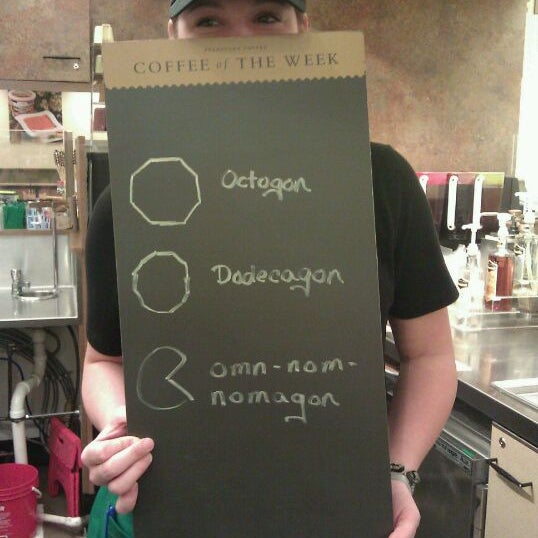 STARBUCKS COFFEE
COFFEE of THE WEEK
Octogon
Dodecagon
omn-nom-
nomagon